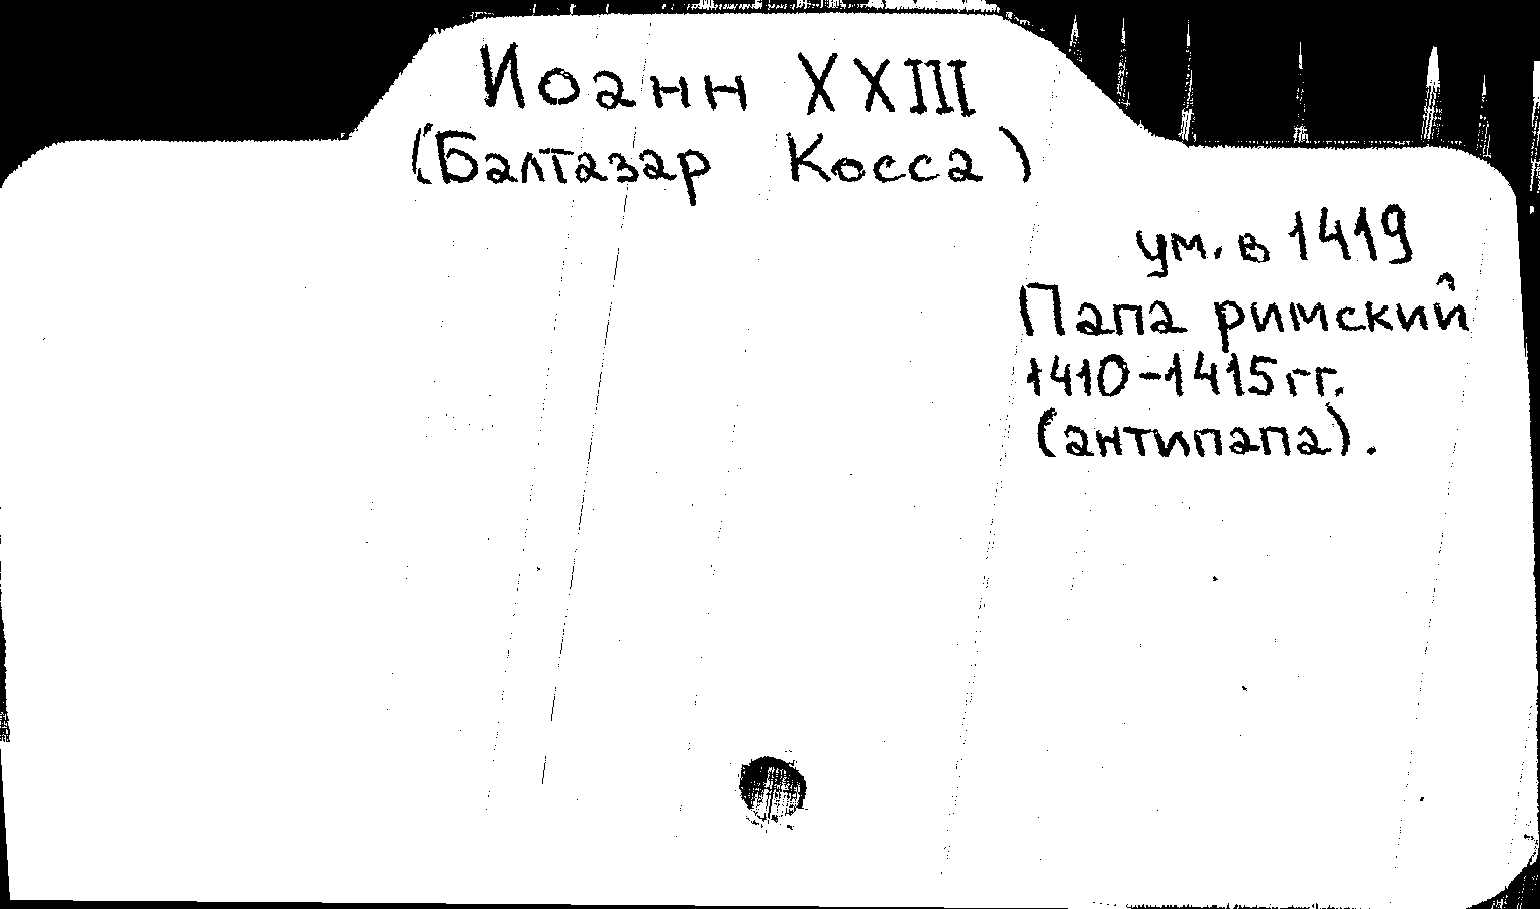 Иоанн XXIII
(Балтазар Косса)
ум. в 1419
Папа римский
1410-1415 гг.
(антипапа).